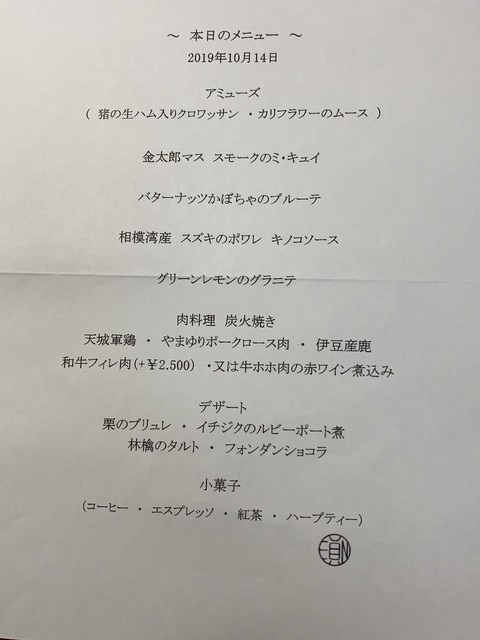 ～ 本日のメニュー ～
2019年10月14日
アミューズ
( 猪の生ハム入りクロワッサン ・カリフラワーのムース )
金太郎マス スモークのミ・キュイ
バターナッツかぼちゃのブルーテ
相模湾産 スズキのポワレ キノコソース
グリーンレモンのグラニテ
肉料理 炭火焼き
天城軍鶏 ・ やまゆりポークロース肉 ・ 伊豆産鹿
和牛フィレ肉(+￥2.500) ・又は牛ホホ肉の赤ワイン煮込み
デザート
栗のブリュレ ・ イチジクのルビーポート煮
林檎のタルト ・ フォンダンショコラ
小菓子
(コーヒー ・ エスプレッソ ・ 紅茶 ・ ハーブティー)